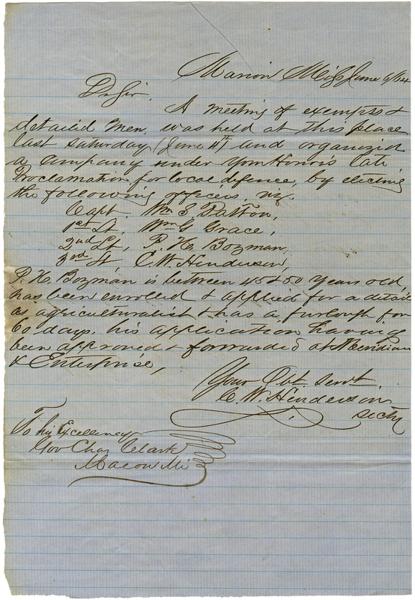 Marion Miss June 9/64
Dr Sir.
A meeting of exempts &
detailed men, was held at this place
last Saturday, June 4th and organized
a company under your Honors late
Proclamation for local defence, by electing
the following officers, viz.
Capt. Wm S Patton,
1st Lt, Wm G Grace,
2nd Lt, P. H. Bozman,
3rd Lt C. W. Henderson,
P. H. Bozman is between 45 & 50 years old,
has been enrolled & applied for a detail
as agriculturalist & has a furlough for
60 days. his application having
been approved & forwarded at Meridian
& Enterprise,
Your Obt Servt
C. W. Henderson
secty
To his Excellency
Gov Chas Clark
Macon Mi